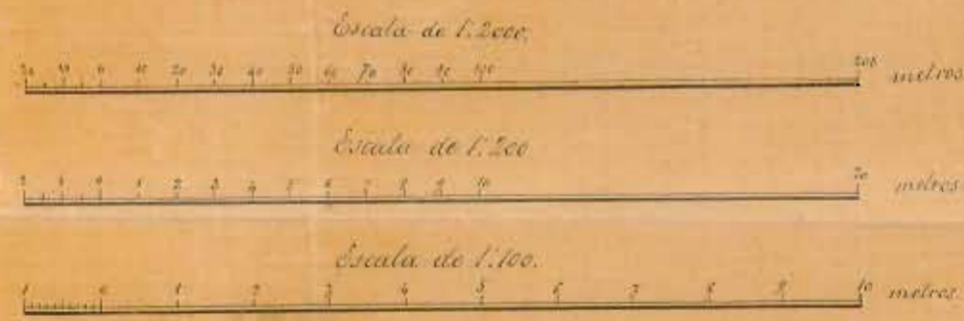 Escala de 1:2000.
20 10 0 10 20 30 40 50 60 70 80 90 100 200 metros
Escala de 1:200
2 1 0 1 2 3 4 5 6 7 8 9 10 20 metros
Escala de 1:100.
1 0 1 2 3 4 5 6 7 8 9 10 metros.